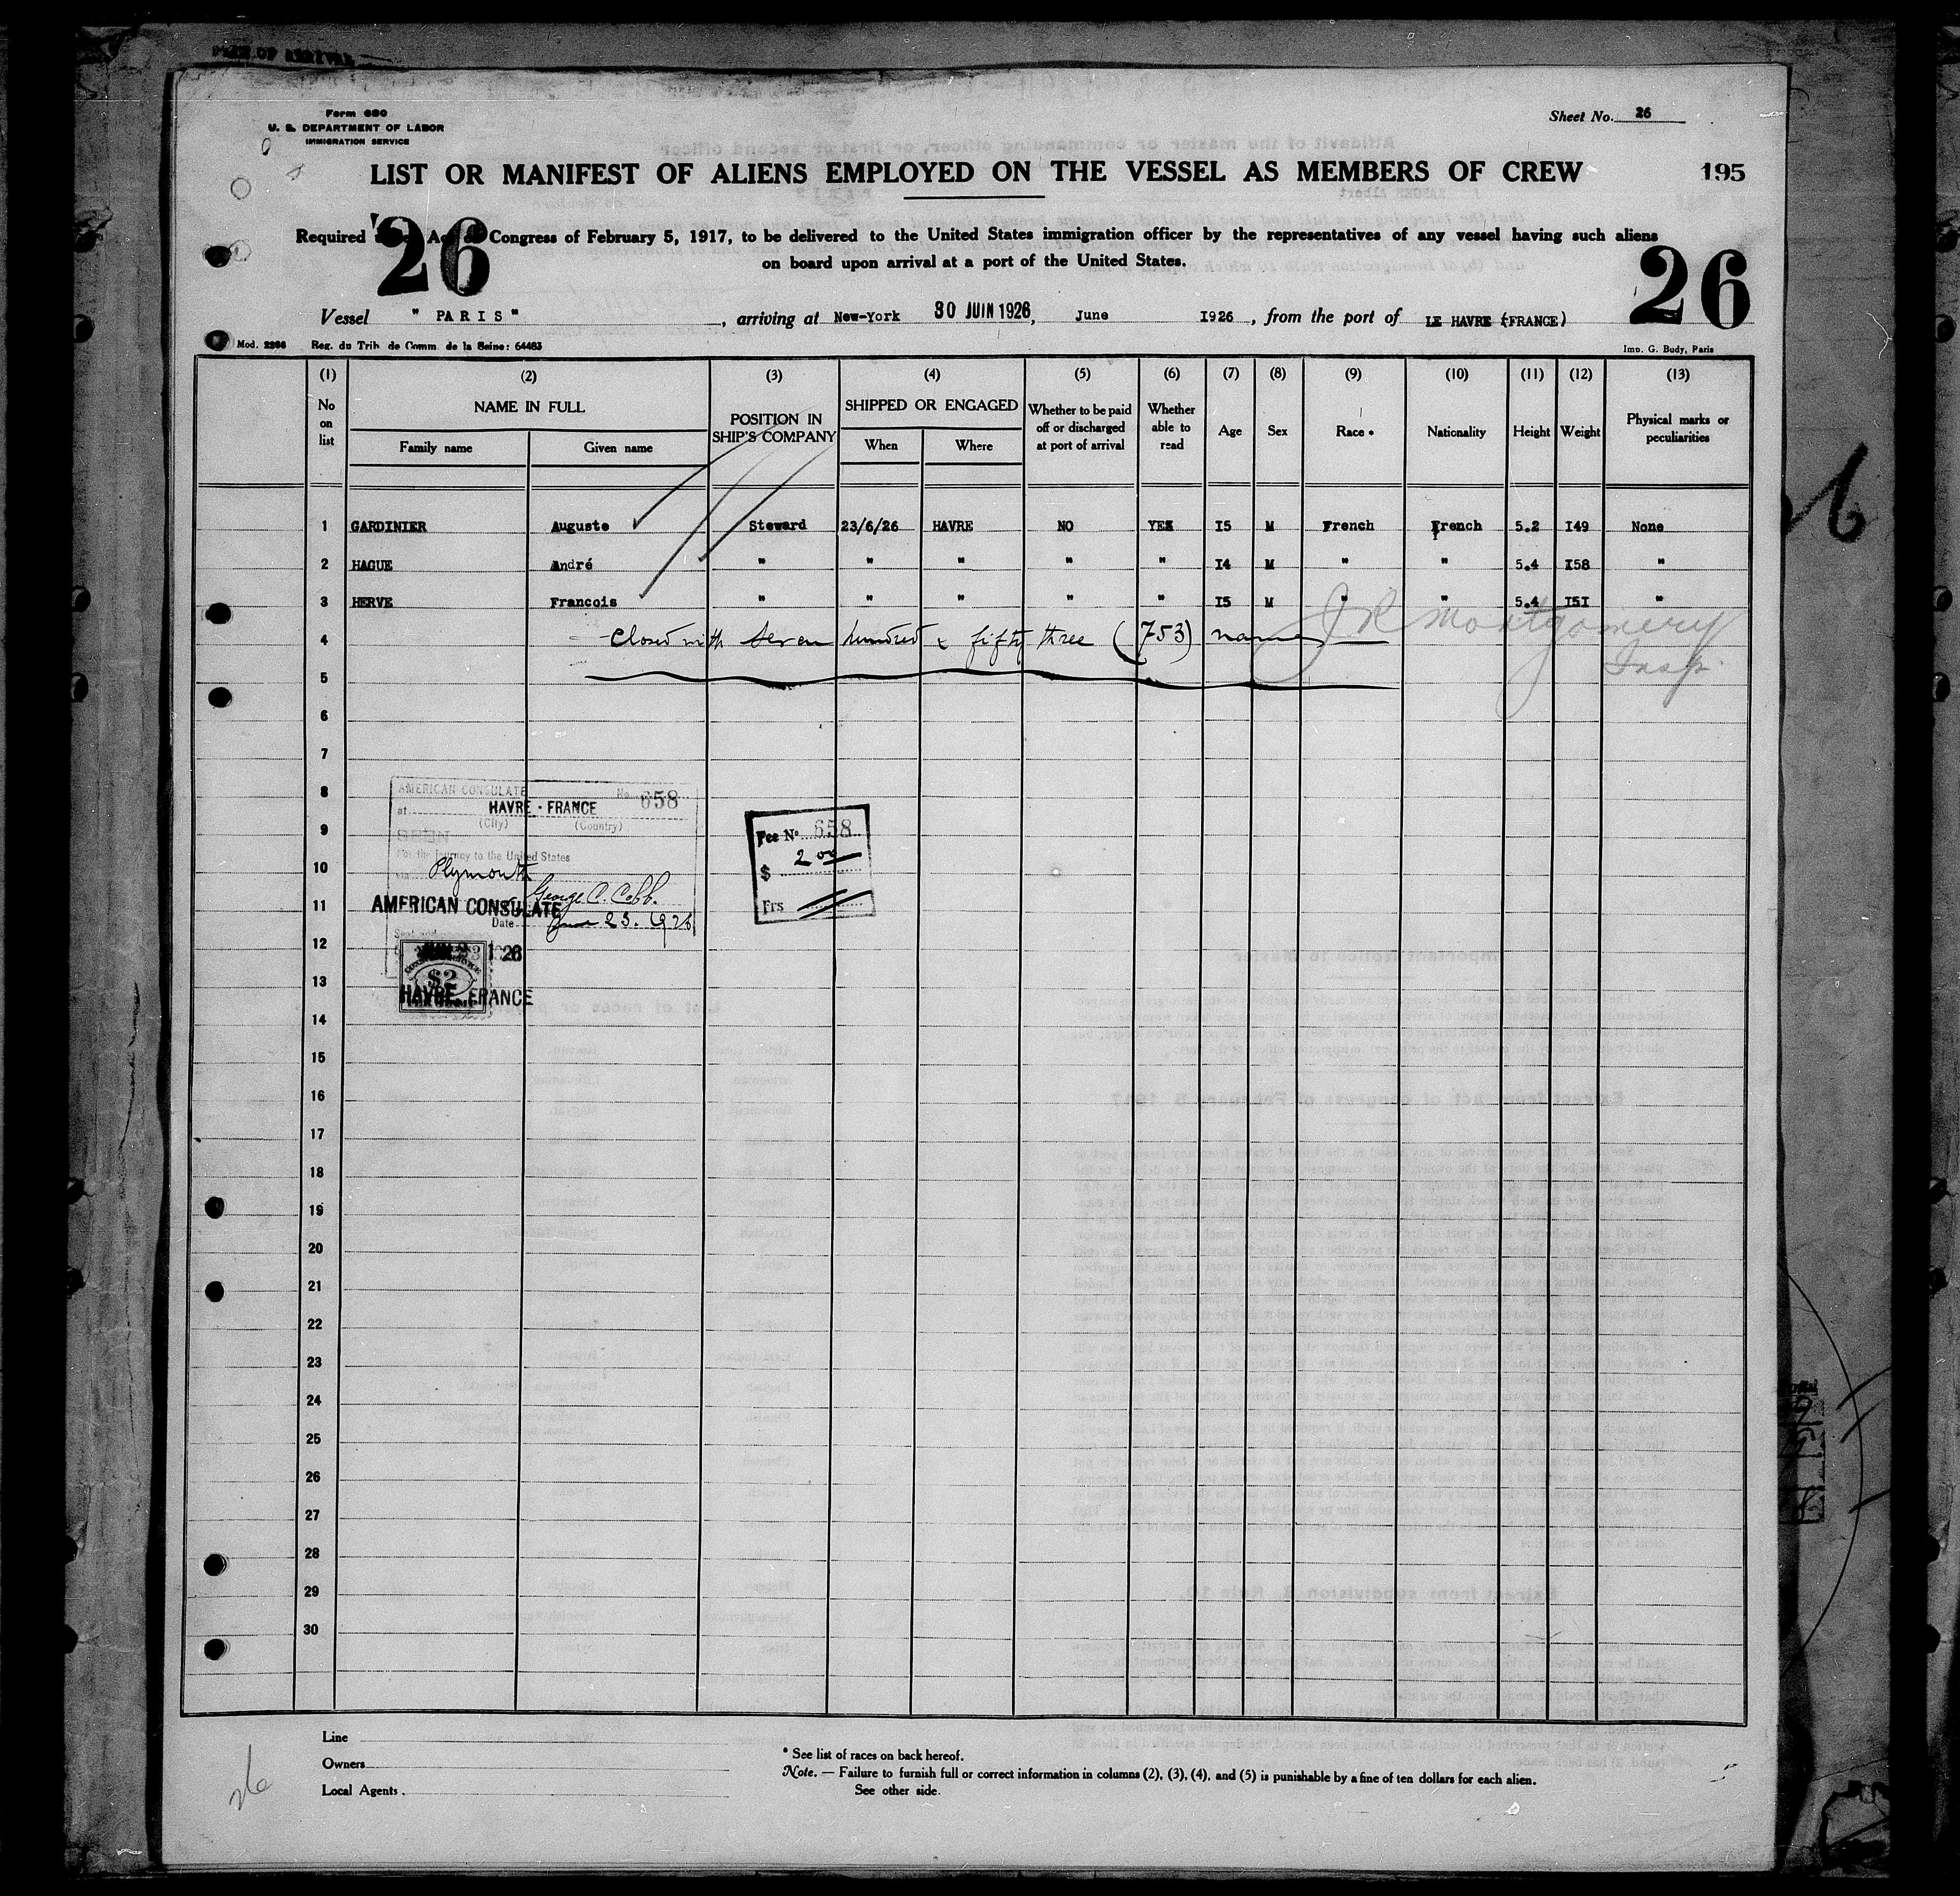 Form 680
U. S. DEPARTMENT OF LABOR
IMMIGRATION SERVICE
Sheet No. 26
LIST OR MANIFEST OF ALIENS EMPLOYED ON THE VESSEL AS MEMBERS OF CREW
195
26
26
Required Act Congress of February 5, 1917, to be delivered to the United States immigration officer by the representatives of any vessel having such aliens
on board upon arrival at a port of the United States.
Vessel " PARIS " , arriving at New-York 30 JUIN 1926, June 1926 , from the port of LE HAVRE (FRANCE)
Mod. 2286 Reg. du Trib. de Comm. de la Seine: 64483
Imp. G. Budy, Paris
(1) (2) (3) (4) (5) (6) (7) (8) (9) (10) (11) (12) (13)
No on list NAME IN FULL POSITION IN SHIP'S COMPANY SHIPPED OR ENGAGED Whether to be paid off or discharged at port of arrival Whether able to read Age Sex Race * Nationality Height Weight Physical marks or peculiarities
Family name Given name When Where
1 GARDINIER Auguste Steward 23/6/26 HAVRE NO YES I5 M French French 5.2 I49 None
2 HAGUE André " " " " " I4 M " " 5.4 I58 "
3 HERVE Francois " " " " " I5 M " " 5.4 I5I "
4 Closed with seven hundred & fifty three (753) names J R Montgomery
5 Insp.
6
7
8
9
10
11
12
13
14
15
16
17
18
19
20
21
22
23
24
25
26
27
28
29
30
AMERICAN CONSULATE No. 658
at HAVRE - FRANCE
(City) (Country)
SEEN
For the journey to the United States
Plymouth
George C. Cobb.
AMERICAN CONSULATE
Date June 23. 1926
$2
HAVRE, FRANCE
Fee No. 658
$ 2 00
Frs
Line
Owners
Local Agents
* See list of races on back hereof.
Note. — Failure to furnish full or correct information in columns (2), (3), (4), and (5) is punishable by a fine of ten dollars for each alien.
See other side.
26